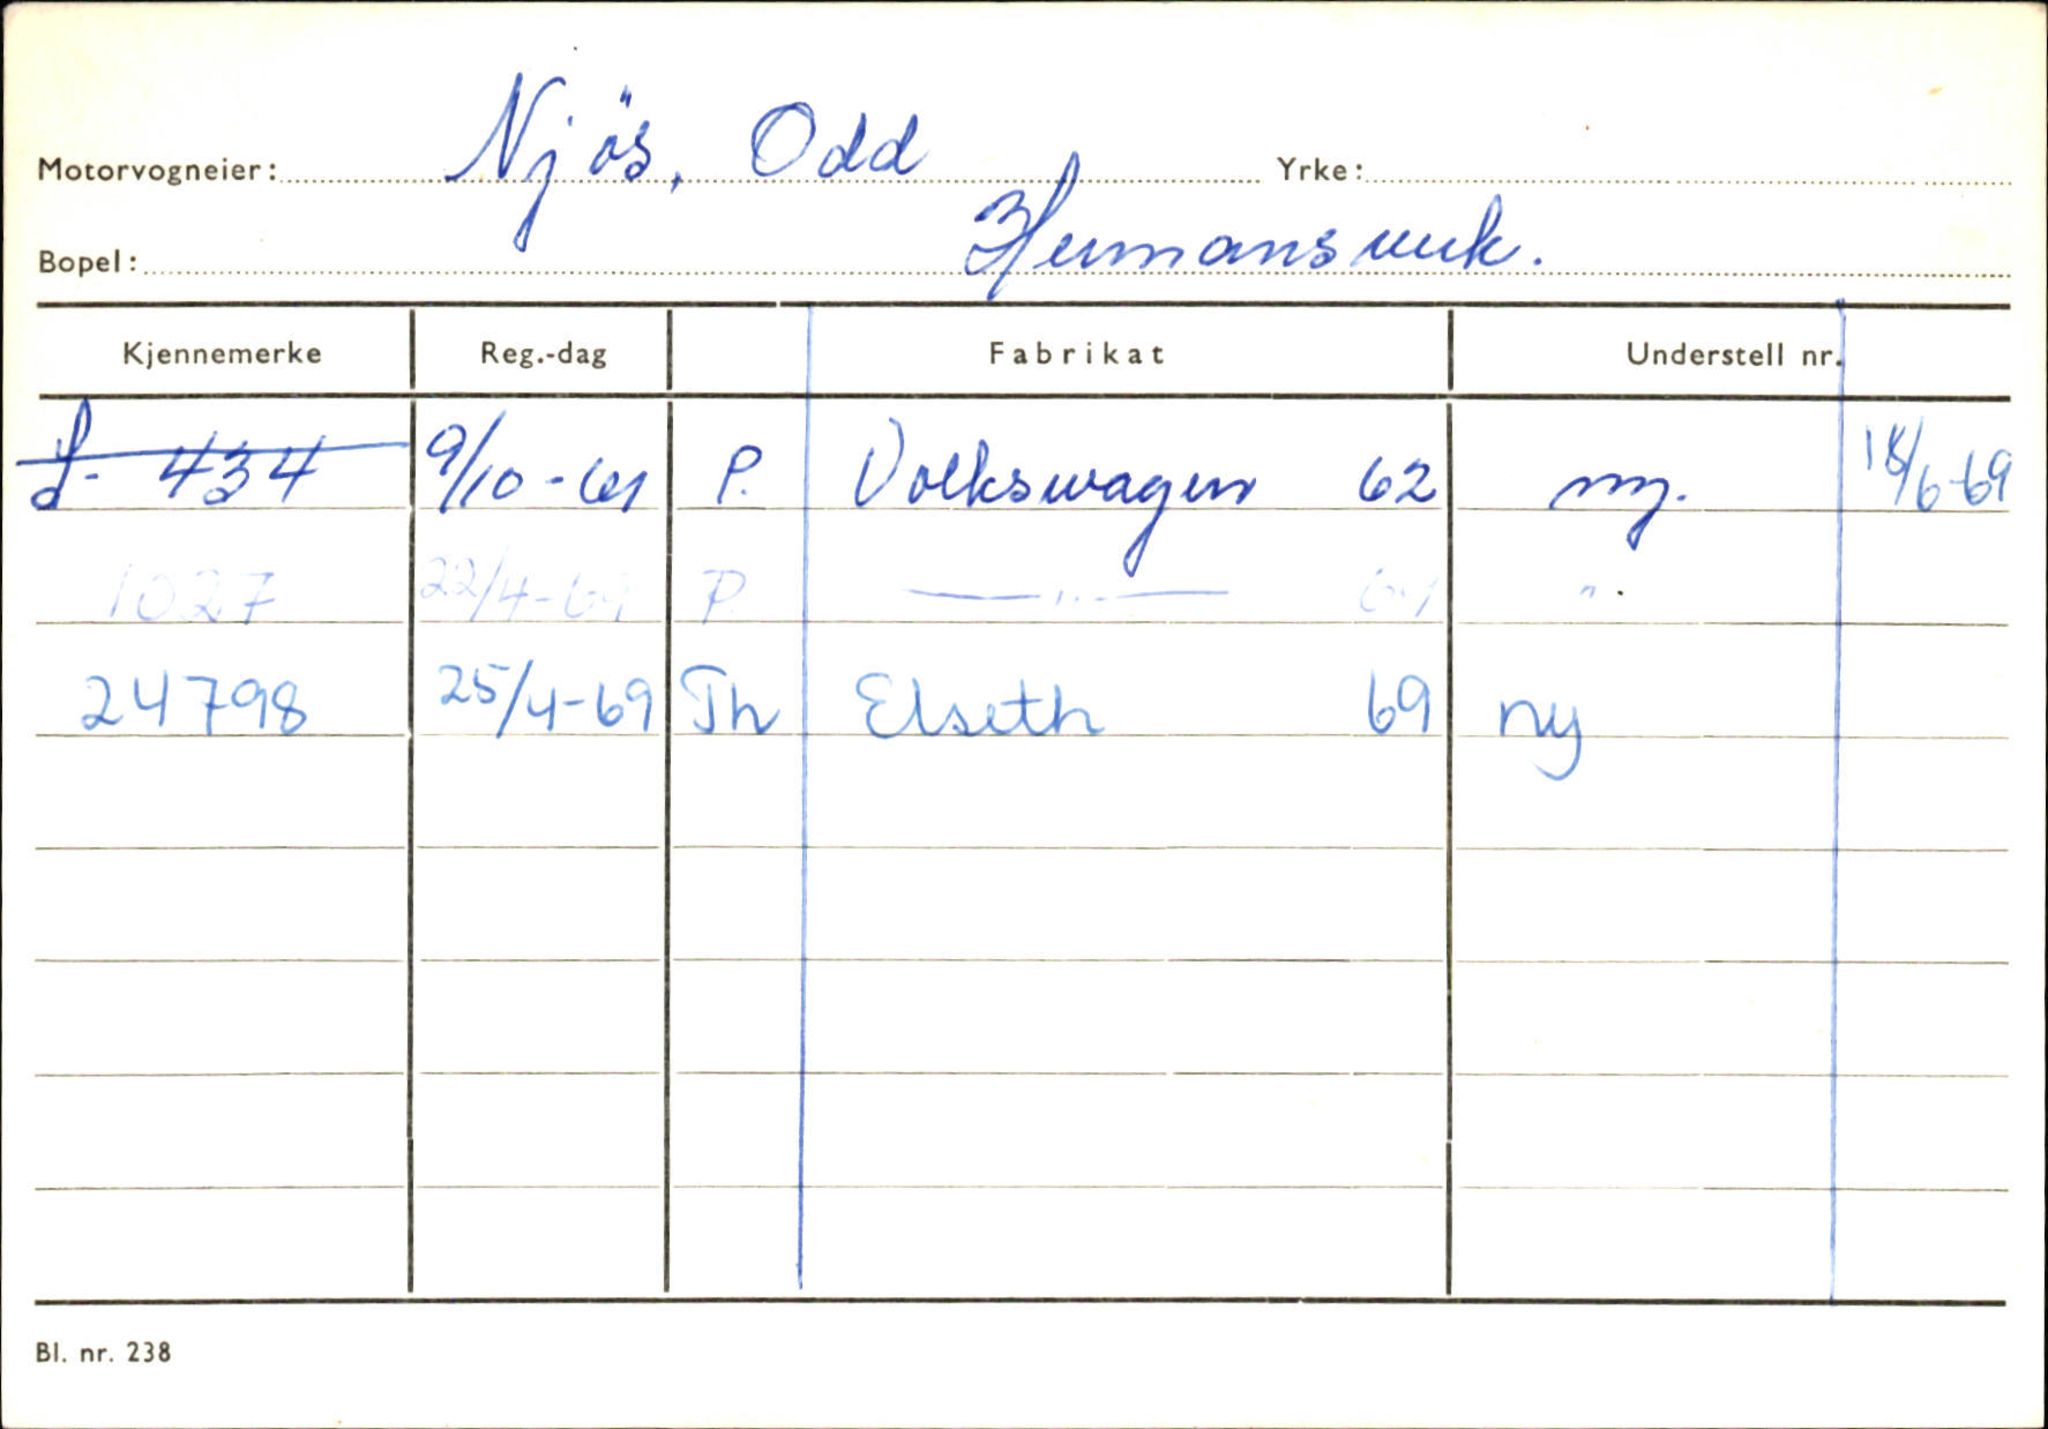 Motorvogneier: Njös, Odd Yrke:
Bopel: Hermansverk.
Kjennemerke Reg.-dag Fabrikat Understell nr.
S- 434 9/10-61 P. Volkswagen 62 ny. 18/6-69
1027 22/4-69 P —〃— " .
24798 25/4-69 Th Elseth 69 ny
Bl. nr. 238